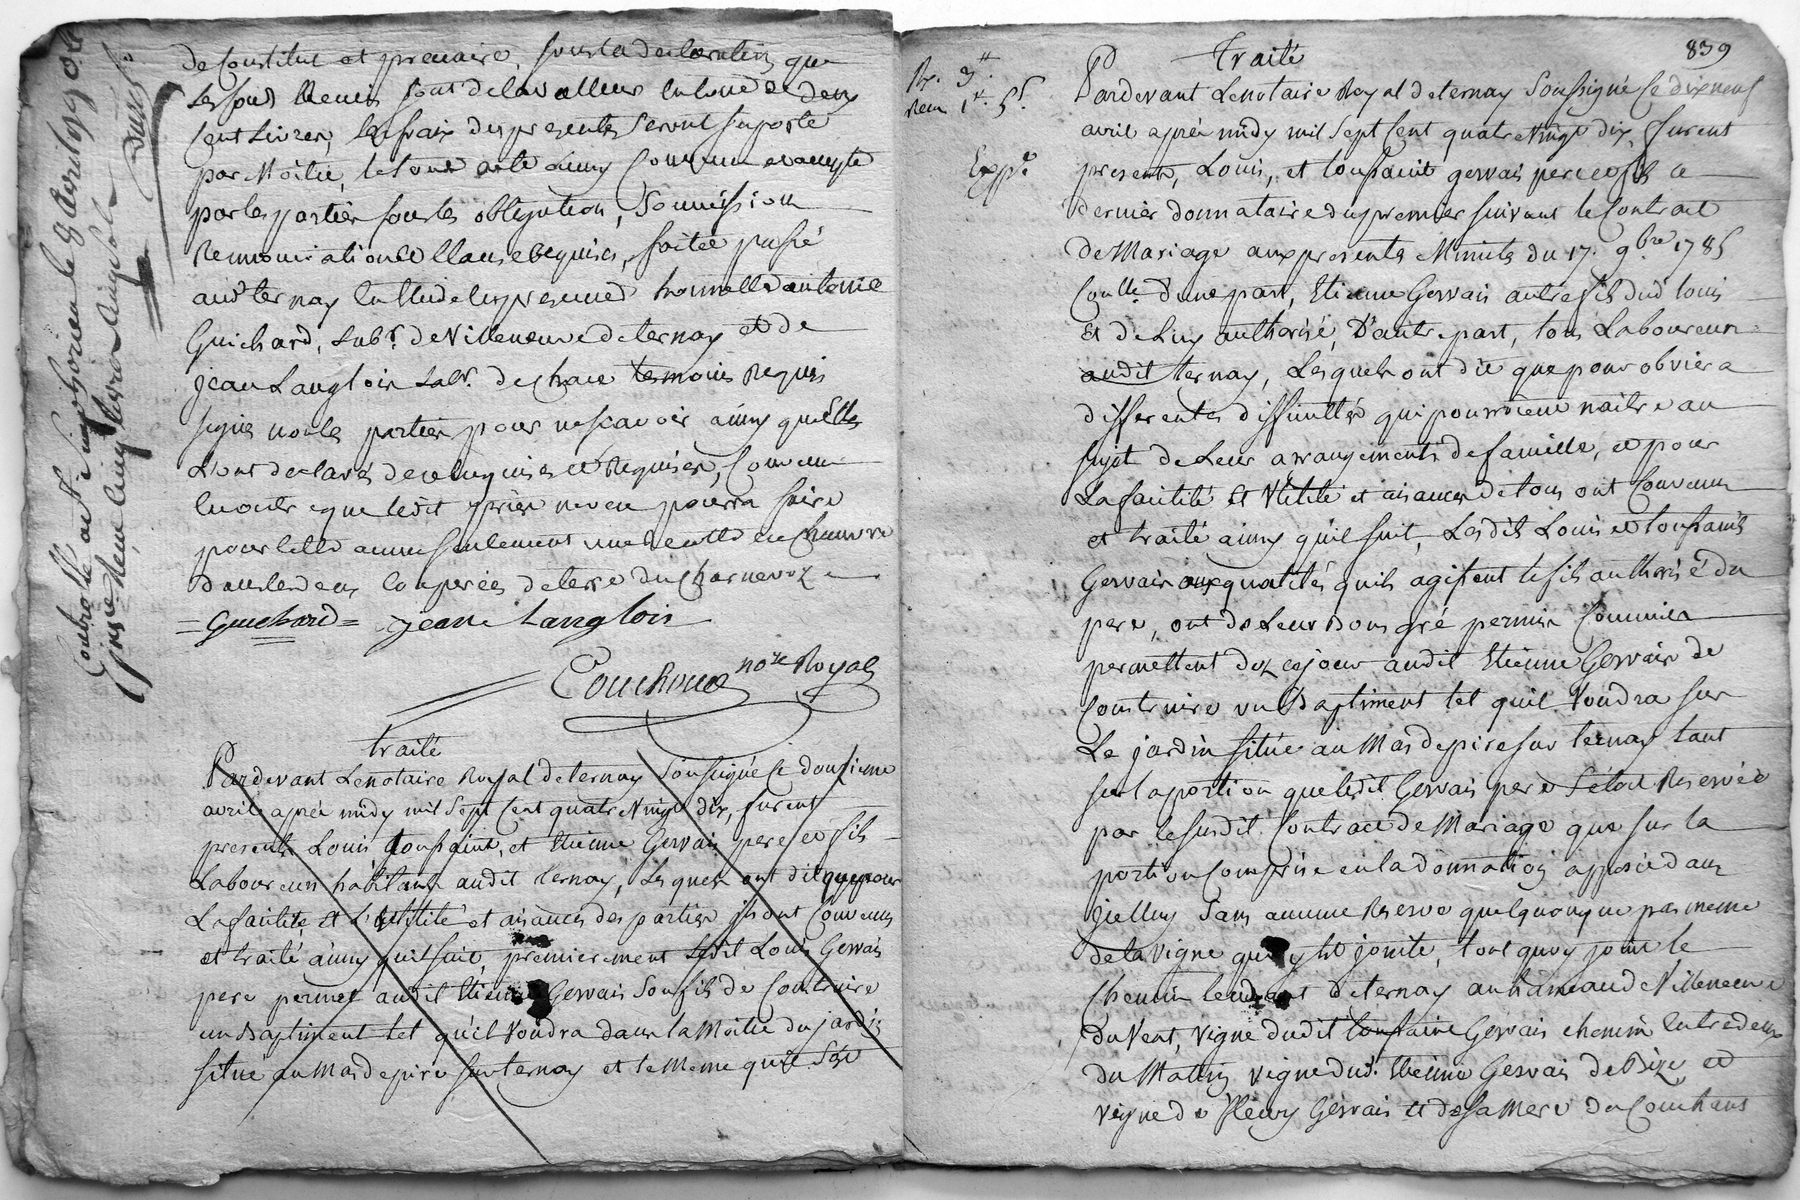 de Constitut et precaire, sous la declaration que
les fonds sont de la valleur en tout de deux
cent Livres, les fraix des presentes seront suporté
par Moitié, le tout a été ainsy Convenu et accepté
par les parties sous les obligations, Soumission
Rennonciation et Clause requises, faite et passé
aud ternay en l'Etude en presence d'honnetes antoine
Guichard, Labr. de Villeneuve de ternay et de
jean Langlois Labr. de temoins Requis
signés non les parties pour ne scavoir ainsy quelles
L'ont declarés de ce enquises et Requises, Convenu
en outre que ledit prier ne pourra faire
pour cette année seulement une en Chanvre
dans les deux Couperées de terre du Charnevoz
= Guichard = jean Langlois
Couchoud nore Royal
traité
Pardevant Le notaire Royal de ternay Soussigné Ce douzieme
avril après midy mil Sept Cent quatre Vingt dix, furent
presents Louis toussaint, et Etienne Gervais pere et fils
Laboureurs habitants audit ternay, Lesquels ont dit que pour
La facilité et L'utilité et aisances des parties ils ont Convenus
et traité ainsy qu'il suit, premierement Ledit Louis Gervais
pere permet audit Etienne Gervais Son fils de Construire
un Baptiment tel qu'il Voudra dans la Moitié du jardin
situé au Mas de pire sur ternay et le Meme qu'il S'est
Controllé a St Simphorien le 8 avril 1790
839
traité
Expe.
Pardevant Le notaire Royal de ternay Soussigné Ce dix neuf
avril après midy mil Sept Cent quatre Vingt dix, furent
presents, Louis, et toussaint gervais pere et fils ce
dernier donnataire du premier suivant le Contract
de Mariage aux presentes Minutes du 17. 9bre 1785
Conllé d'une part, Etienne Gervais autre fils dud Louis
Et de Luy authorisé, D'autre part, tous Laboureurs
audit ternay, Lesquels ont dit que pour obvier a
differentes difficultés qui pourroient naitre au
sujet de Leur arrangements de famille, et pour
La facilité Et Utilité et aisances de tous ont Convenu
et traité ainsy qu'il suit, Lesdits Louis et toussaint
Gervais aux qualités qu'ils agissent le fils authorisé du
pere, ont de Leur Bon gré permis Comme ils
permettent dez ce jour audit Etienne Gervais de
Construire un Baptiment tel qu'il Voudra sur
Le jardin situé au Mas de pire sur ternay tant
sur la portion que ledit Gervais pere S'étoit Reservée
par le susdit Contract de Mariage que sur la
portion Comprise en la donnation apposée dans
jcelluy Sans aucune Reserve quelquonque pas meme
de la vigne qui y est jointe, tout quoy joint le
Chemin tendant de ternay au hameau de Villeneuve
du Vent, Vigne dudit toussaint Gervais chemin entre deux
du Matin, Vigne dud. Etienne Gervais de Bize, et
Vigne de fleury Gervais et de sa Mere du Couchant